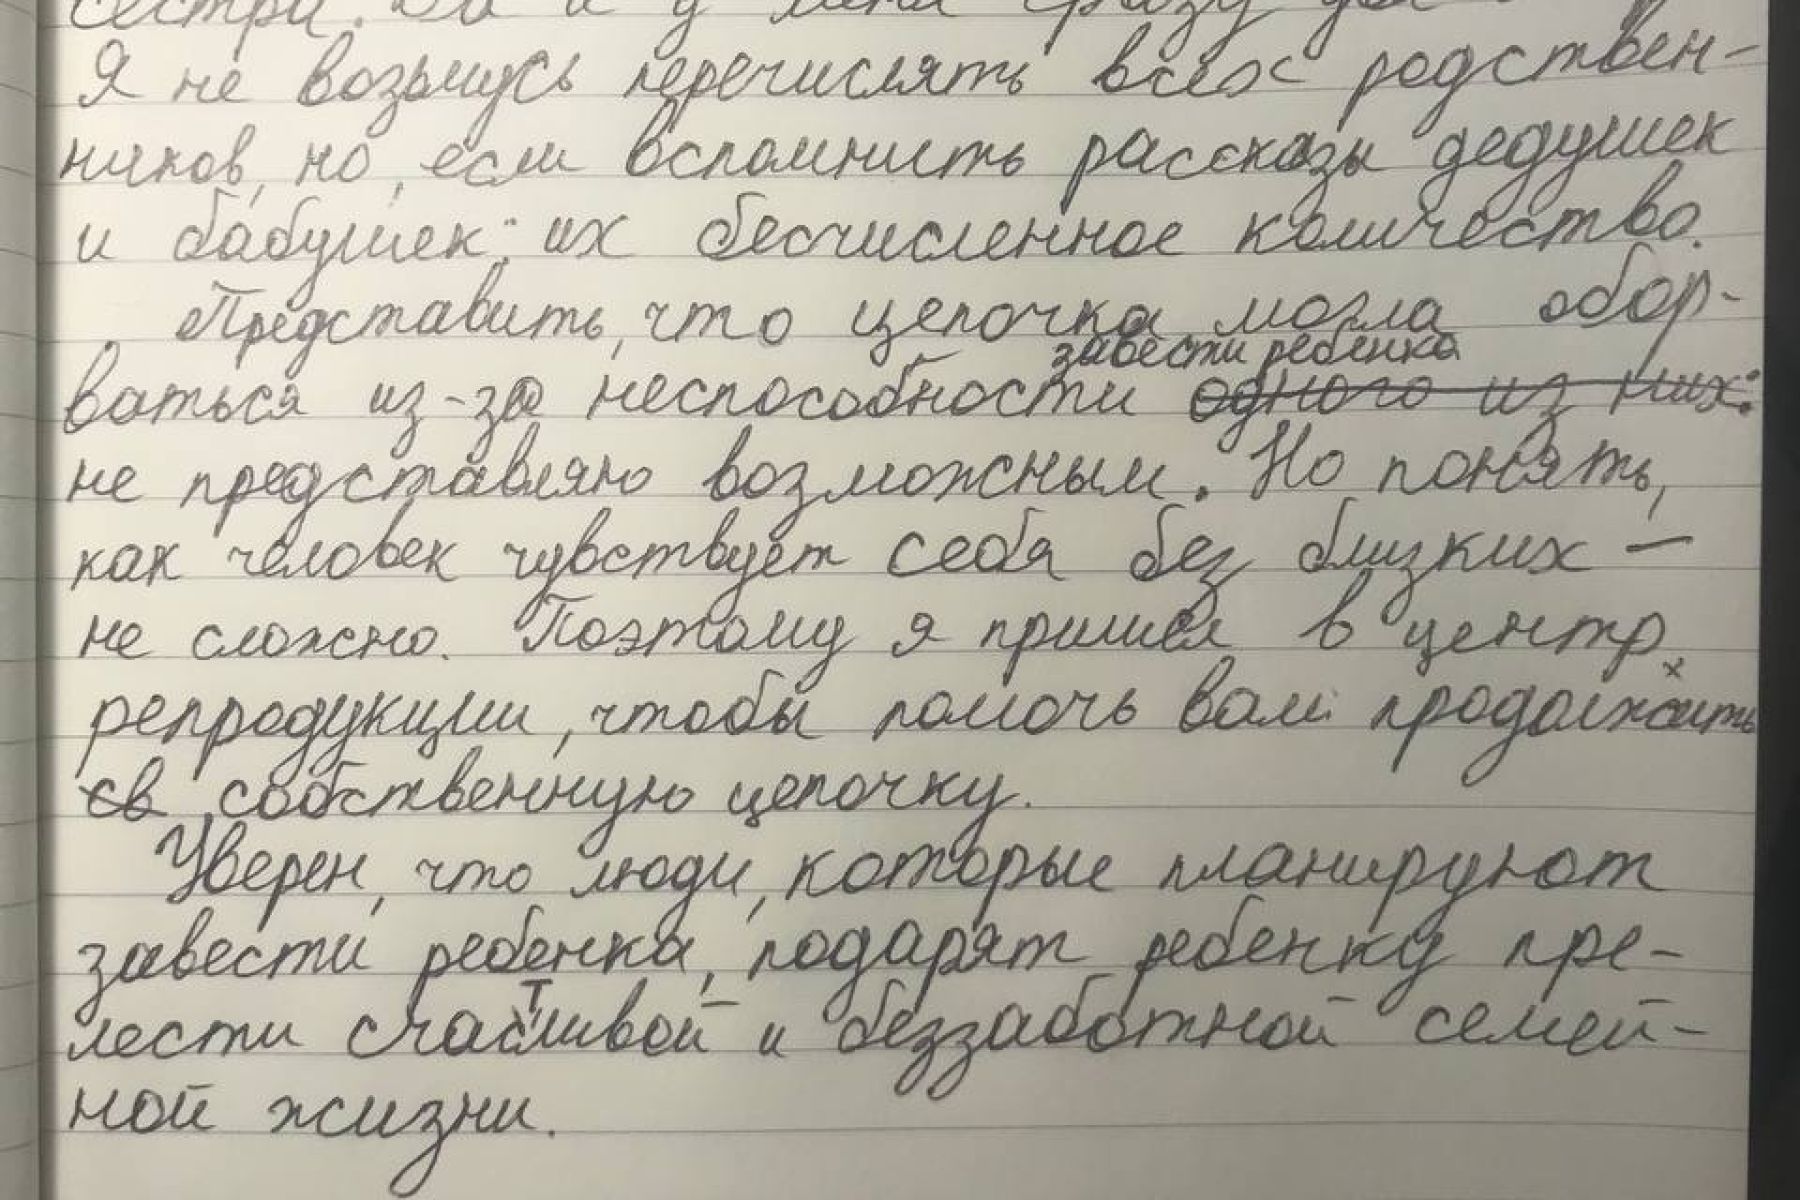 сестри. Да и у меня сразу два
Я не возьмусь перечислять всех родствен-
ников, но, если вспомнить рассказы дедушек
и бабушек: их бесчисленное количество.
Представить, что цепочка могла обор-
завести ребенка
ваться из-за неспособности одного из них:
не представляю возможным. Но понять,
как человек чувствует себя без близких —
не сложно. Поэтому я пришел в центр
репродукции, чтобы помочь вам продолжить
св собственную цепочку.
Уверен, что люди, которые планируют
завести ребенка, подарят ребенку пре-
лести счастливой и беззаботной семей-
ной жизни.